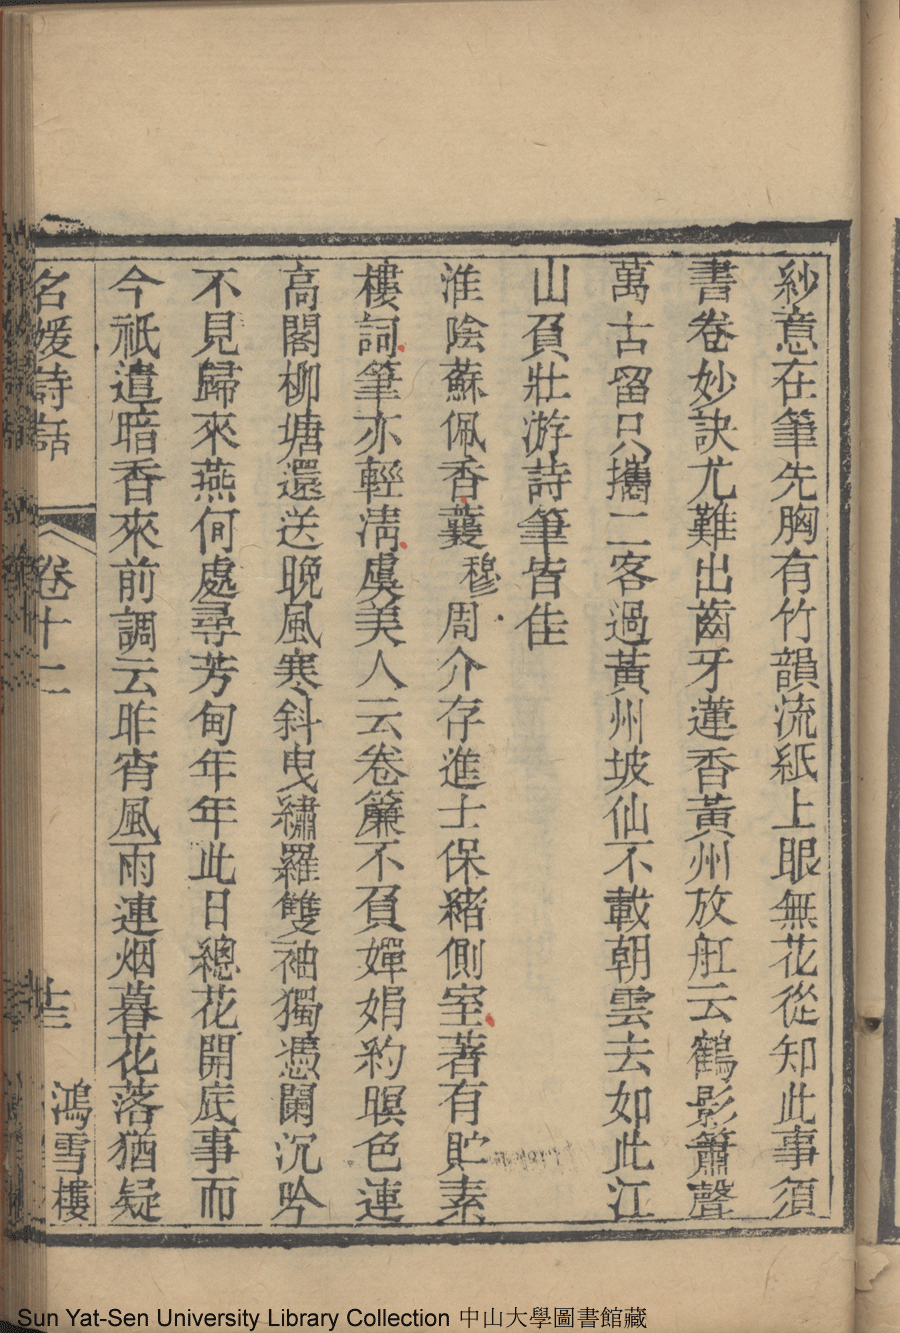 紗意在筆先胸有竹韻流紙上眼無花從知此事須
書卷妙訣尤難出齒牙蓮香黃州放舡云鶴影簫聲
萬古留只攜二客過黃州坡仙不載朝雲去如此江
山負壯游詩筆皆佳
淮陰蘇佩香蘘穆周介存進士保緒側室著有貯素
樓詞筆亦輕清虞美人云卷簾不負嬋娟約暝色連
高閣柳塘還送晚風寒斜曳繡羅雙袖獨憑闌沉吟
不見歸來燕何處尋芳甸年年此日總花開底事而
今祇遣暗香來前調云昨宵風雨連烟暮花落猶疑
名媛詩話
卷十一
廿三
鴻雪樓
Sun Yat-Sen University Library Collection 中山大學圖書館藏